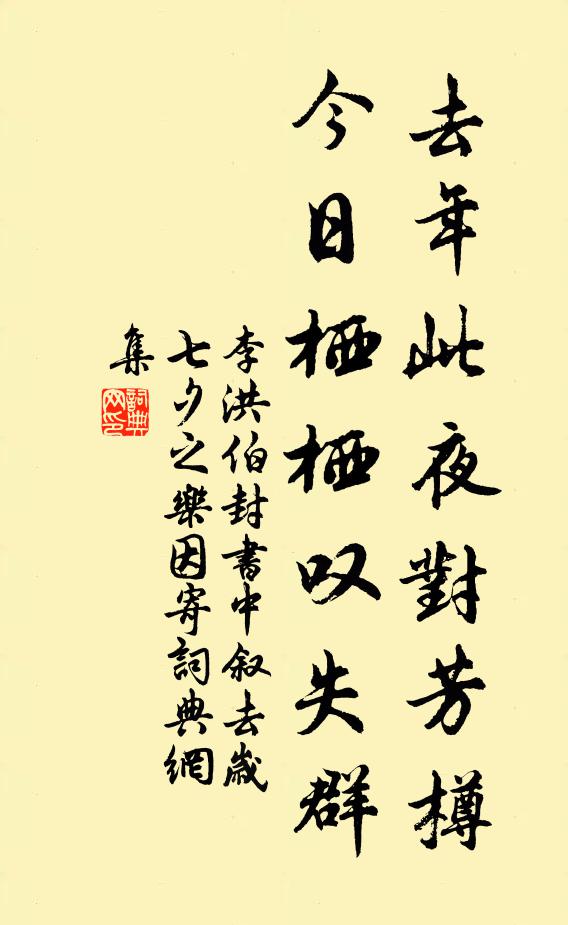 去年此夜對芳樽
今日栖栖叹失群
李洪伯封書中叙去歲
七夕之樂因寄詞典網
集
詞典
网印